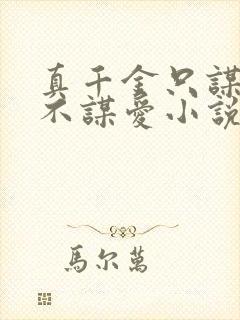 真千金只謀
不謀愛小説
馬尔萬